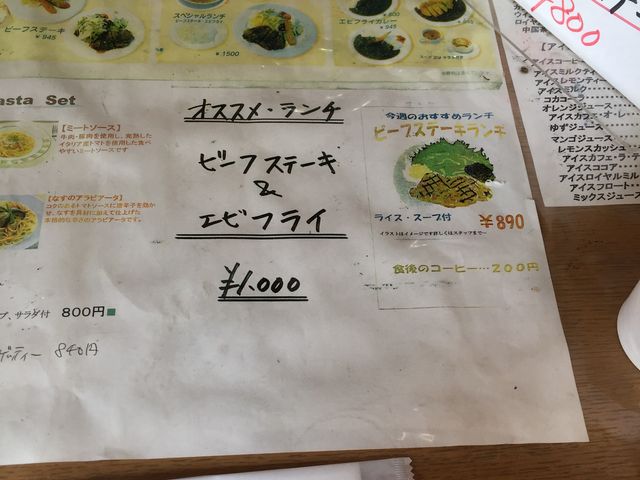 ビーフステーキ
¥945
スペシャルランチ
¥1500
エビフライカレー
¥945
¥800
asta Set
【ミートソース】
牛肉・豚肉を使用し、完熟した
イタリア産トマトを使用した食べ
やすいミートソースです
【なすのアラビアータ】
コクのあるトマトソースに唐辛子を効か
せ、なすを具材に加えて仕上げた
本格的な辛さのアラビアータです。
プ、サラダ付 800円
ゲッティー 840円
オススメ・ランチ
ビーフステーキ
&
エビフライ
¥1.000
今週のおすすめランチ
ビーフステーキランチ
ライス・スープ付 ¥890
イラストはイメージです詳しくはスタッフまで〜
食後のコーヒー…200円
【アイス
アイスコーヒー
アイスミルクティ
アイスレモンティー
アイスミルク
コカコーラ
オレンジジュース
アイスカフェ・オ・レ
ゆずジュース
マンゴジュース
レモンスカッシュ
アイスカフェ・ラ
アイスココア
アイスロイヤルミル
アイスフロート
ミックスジュース